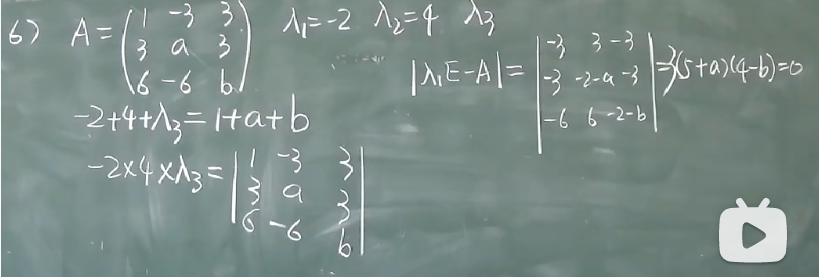 6) A = ( 1 -3 3 λ₁=-2 λ₂=4 λ₃
3 a 3
6 -6 b )
|λ₁E-A| = | -3 3 -3
-3 -2-a -3
-6 6 -2-b | = -3(5+a)(4-b)=0
-2+4+λ₃=1+a+b
-2×4×λ₃= | 1 -3 3
3 a 3
6 -6 b |